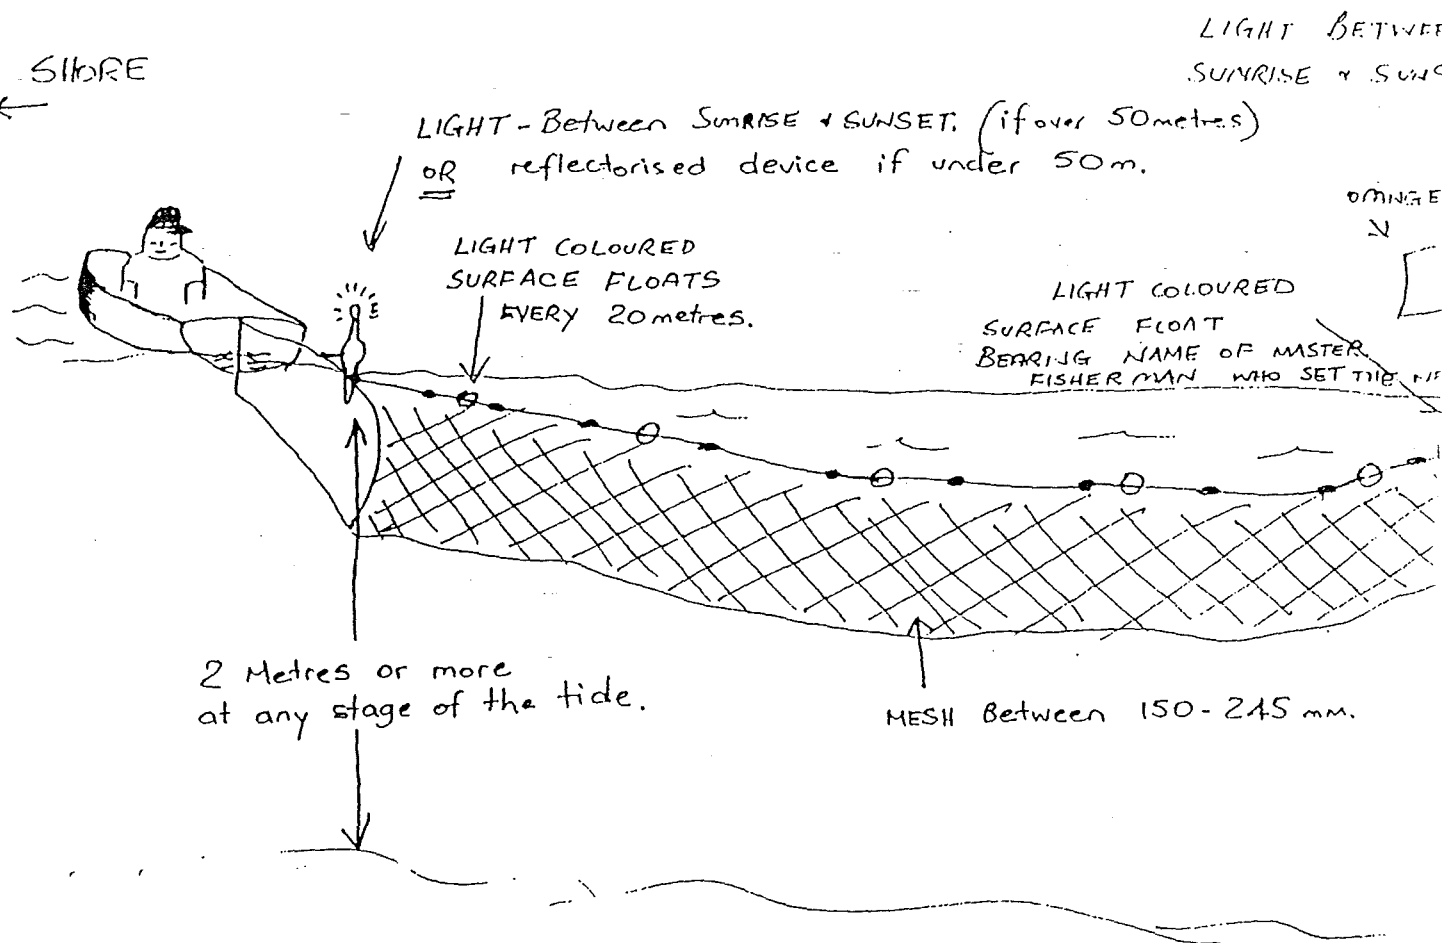 SHORE
LIGHT BETWEE
SUNRISE & SUNS
LIGHT - Between SUNRISE & SUNSET. (if over 50 metres)
OR reflectorised device if under 50m.
ORANGE
LIGHT COLOURED
SURFACE FLOATS
EVERY 20 metres.
LIGHT COLOURED
SURFACE FLOAT
BEARING NAME OF MASTER
FISHERMAN WHO SET THE
2 Metres or more
at any stage of the tide.
MESH Between 150 - 245 mm.